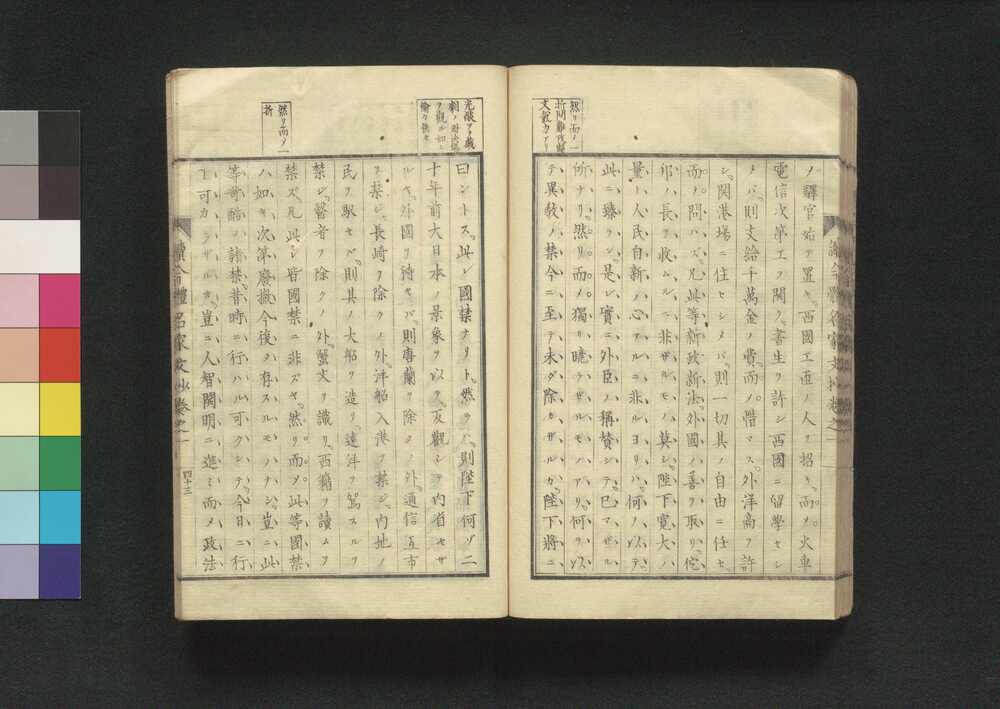 然リ而ノ一
文氣力アリ
ノ驛官始テ置キ、西國工匠ノ人ヲ招キ、而ノ火車
電信次第エヲ開ク、書生ヲ許シ西國ニ留學セシ
メバ、則支給千萬金ノ費、而ノ惜マス、外洋商ヲ許
シ、開港場ニ住セシメバ、則一切其ノ自由ニ任セ、
而ノ問ハズ、凡此等新政新法、外國ノ善ヲ取リ、佗
邦ノ長ヲ收ルニ非ザルモノ莫シ、陛下寛大ノ
量、人民自新ノ心アルニ非ルヨリハ、何ヲ以テ
此ニ臻ラン、是レ實ニ外臣ノ稱賛シテ已マザル
所ナリ、然リ而ノ獨リ モノアリ、何ヲ以
テ異教ノ禁今ニ至テ未ダ除カザルカ、陛下將ニ
曰ントス、此レ國禁ナリト、然ラバ則陛下何ゾ二
十年前大日本ノ景象ヲ以テ反觀シテ內省セザ
ルヤ、外國ヲ待セバ、則唐蘭ヲ除クノ外、通信互市
ヲ禁ジ、長崎ヲ除クノ外、洋船入港ヲ禁ジ、內地ノ
民ヲ馭セバ、則其ノ大船ヲ造リ、遠洋ヲ駕スルヲ
禁ジ、醫者ヲ除クノ外、蟹文ヲ識リ、西籍ヲ讀ムヲ
禁ズ、凡此レ皆國禁ニ非ズヤ、然リ而ノ此等國禁
ハ如キ、次第廢撤今復タ存スルモノナシ、豈ニ此
等苛酷ノ諸禁、昔時ニ行ハル可クシテ、今日ニ行
フ可カラザルカ、豈ニ人智開明ニ進ミ、而ノ政法
然リ而ノ一
折
續今體名家文抄卷之一
四十三